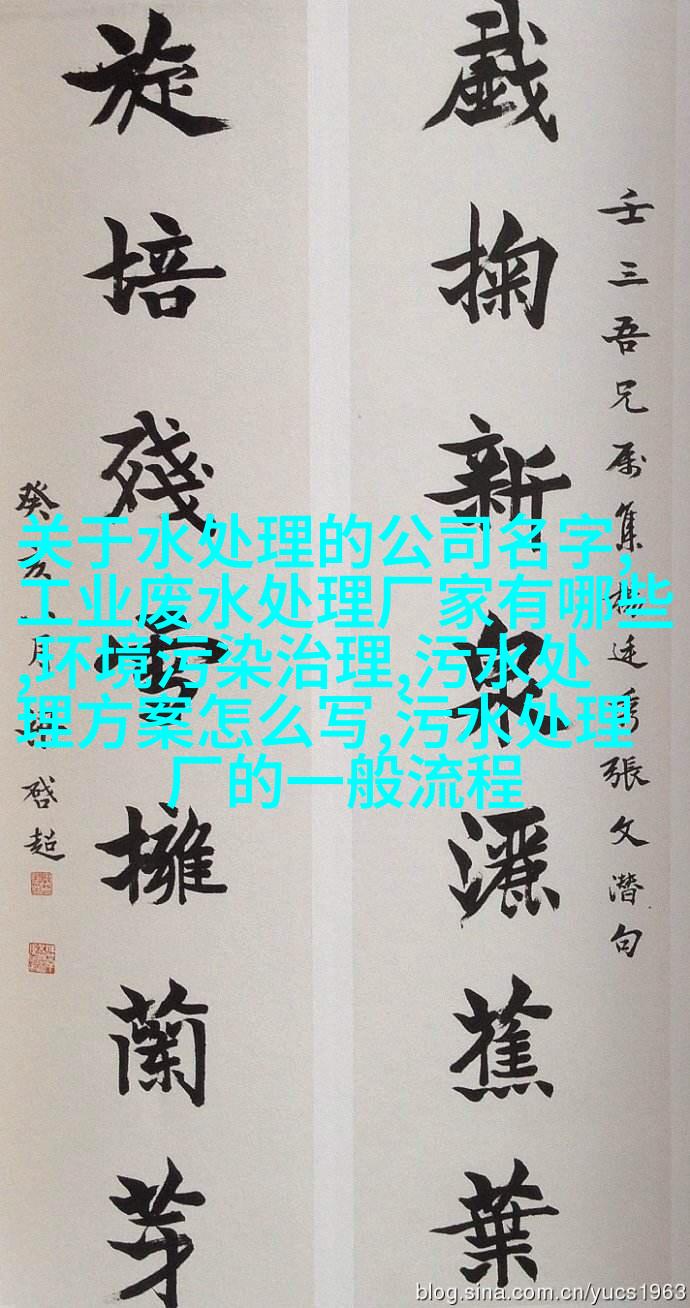 壬三吾兄属集楊廷秀張文潛句
戯掬新泉灑蕉葉
旋培殘擁蘭芽
癸亥月梁启超
关于水处理的公司名字,
工业废水处理厂家有哪些
,环境污染治理,污水处
理方案怎么写,污水处理
厂的一般流程
blog.sina.com.cn/yucs1963